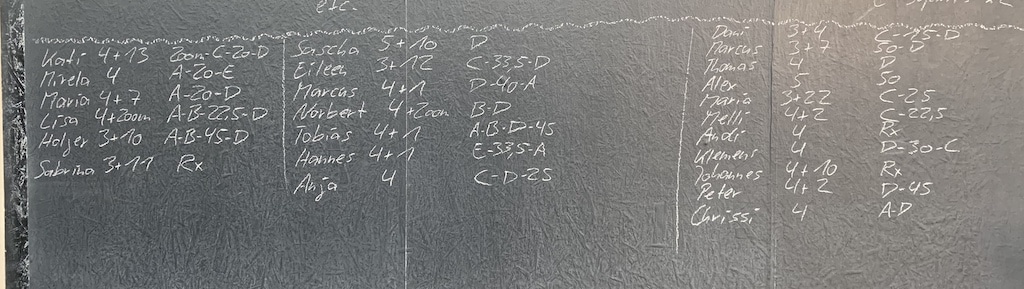 etc.
Kati 4+13 Zoom-C-20-D
Mirela 4 A-20-E
Maria 4+7 A-20-D
Lisa 4+Zoom A-B-22,5-D
Holger 3+10 A-B-45-D
Sabrina 3+11 Rx
Sascha 5+10 D
Eileen 3+12 C-33,5-D
Marcus 4+1 D-40-A
Norbert 4+Zoom B-D
Tobias 4+1 A-B-D-45
Hannes 4+1 E-33,5-A
Anja 4 C-D-25
Dani 3+4
Marcus 3+7 50-D
Thomas 4 D
Alex 5 50
Maria 3+22 C-25
Melli 4+2 C-22,5
Andi 4 Rx
Klemens 4 D-30-C
Johannes 4+10 Rx
Peter 4+2 D-45
Chrissi 4 A-D